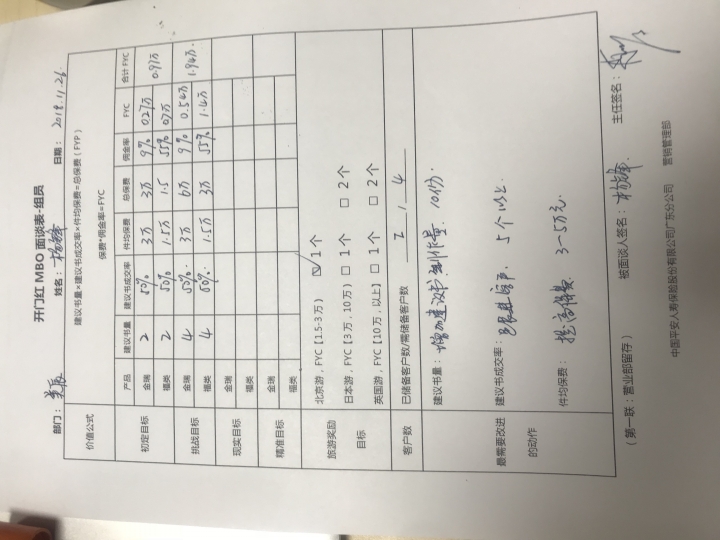 开门红 MBO 面谈表-组员
部门： 姓名： 日期： 2018.11.26
价值公式 建议书量×建议书成交率×件均保费=总保费（FYP）
保费*佣金率=FYC
产品 建议书量 建议书成交率 件均保费 总保费 佣金率 FYC 合计 FYC
初定目标 金瑞 2 50% 3万 3万 9% 0.27万 0.97万
福类 2 50% 1.5万 1.5 55% 0.7万
挑战目标 金瑞 4 50% 3万 6万 9% 0.54万 1.94万
福类 4 50% 1.5万 3万 55% 1.4万
现实目标 金瑞
福类
精准目标 金瑞
福类
旅游奖励 目标
北京游，FYC【1.5-3 万） ☑ 1 个
日本游，FYC【3 万，10 万） □ 1 个 □ 2 个
英国游，FYC【10 万，以上】 □ 1 个 □ 2 个
客户数 已储备客户数/需储备客户数 2 / 4
最需要改进的动作
建议书量： 增加建议书制作量 10份
建议书成交率： 客户 5个以上
件均保费： 提高保费 3-5万元
（第一联：营业部留存） 被面谈人签名： 主任签名：
中国平安人寿保险股份有限公司广东分公司 营销管理部